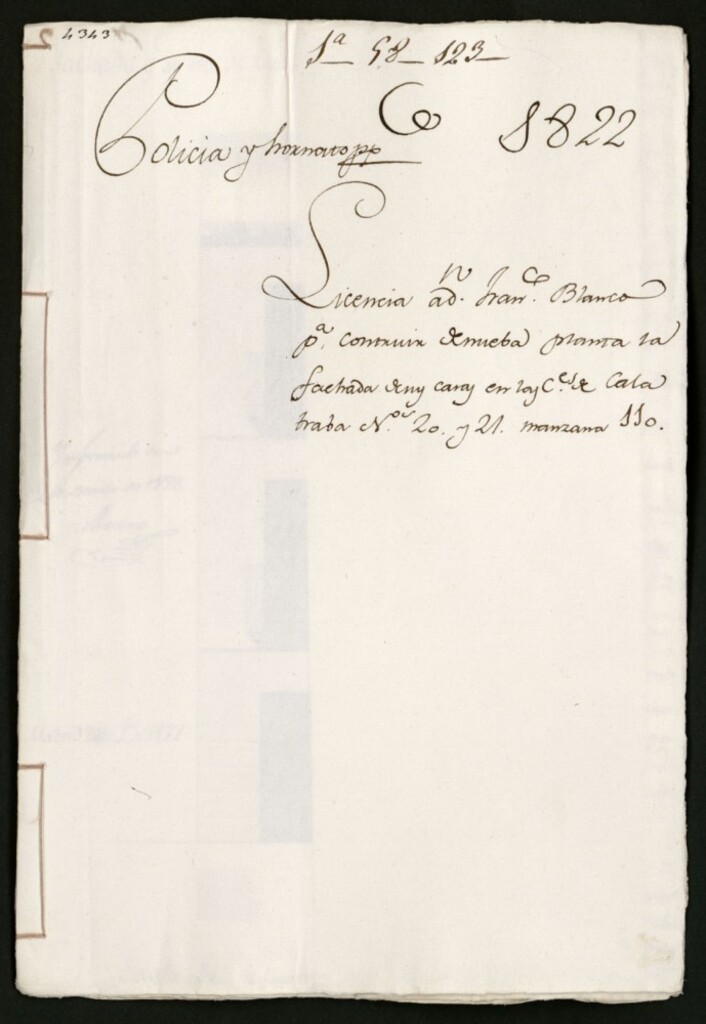 4343
1ª 58 123
Ce 1822
Policia y hornato pp
Licencia a Dn. Franco. Blanco
pª. Contruir de nueba planta la
fachada de sus casas en las Ces. de Cala
traba Nos. 20. y 21. manzana 110.